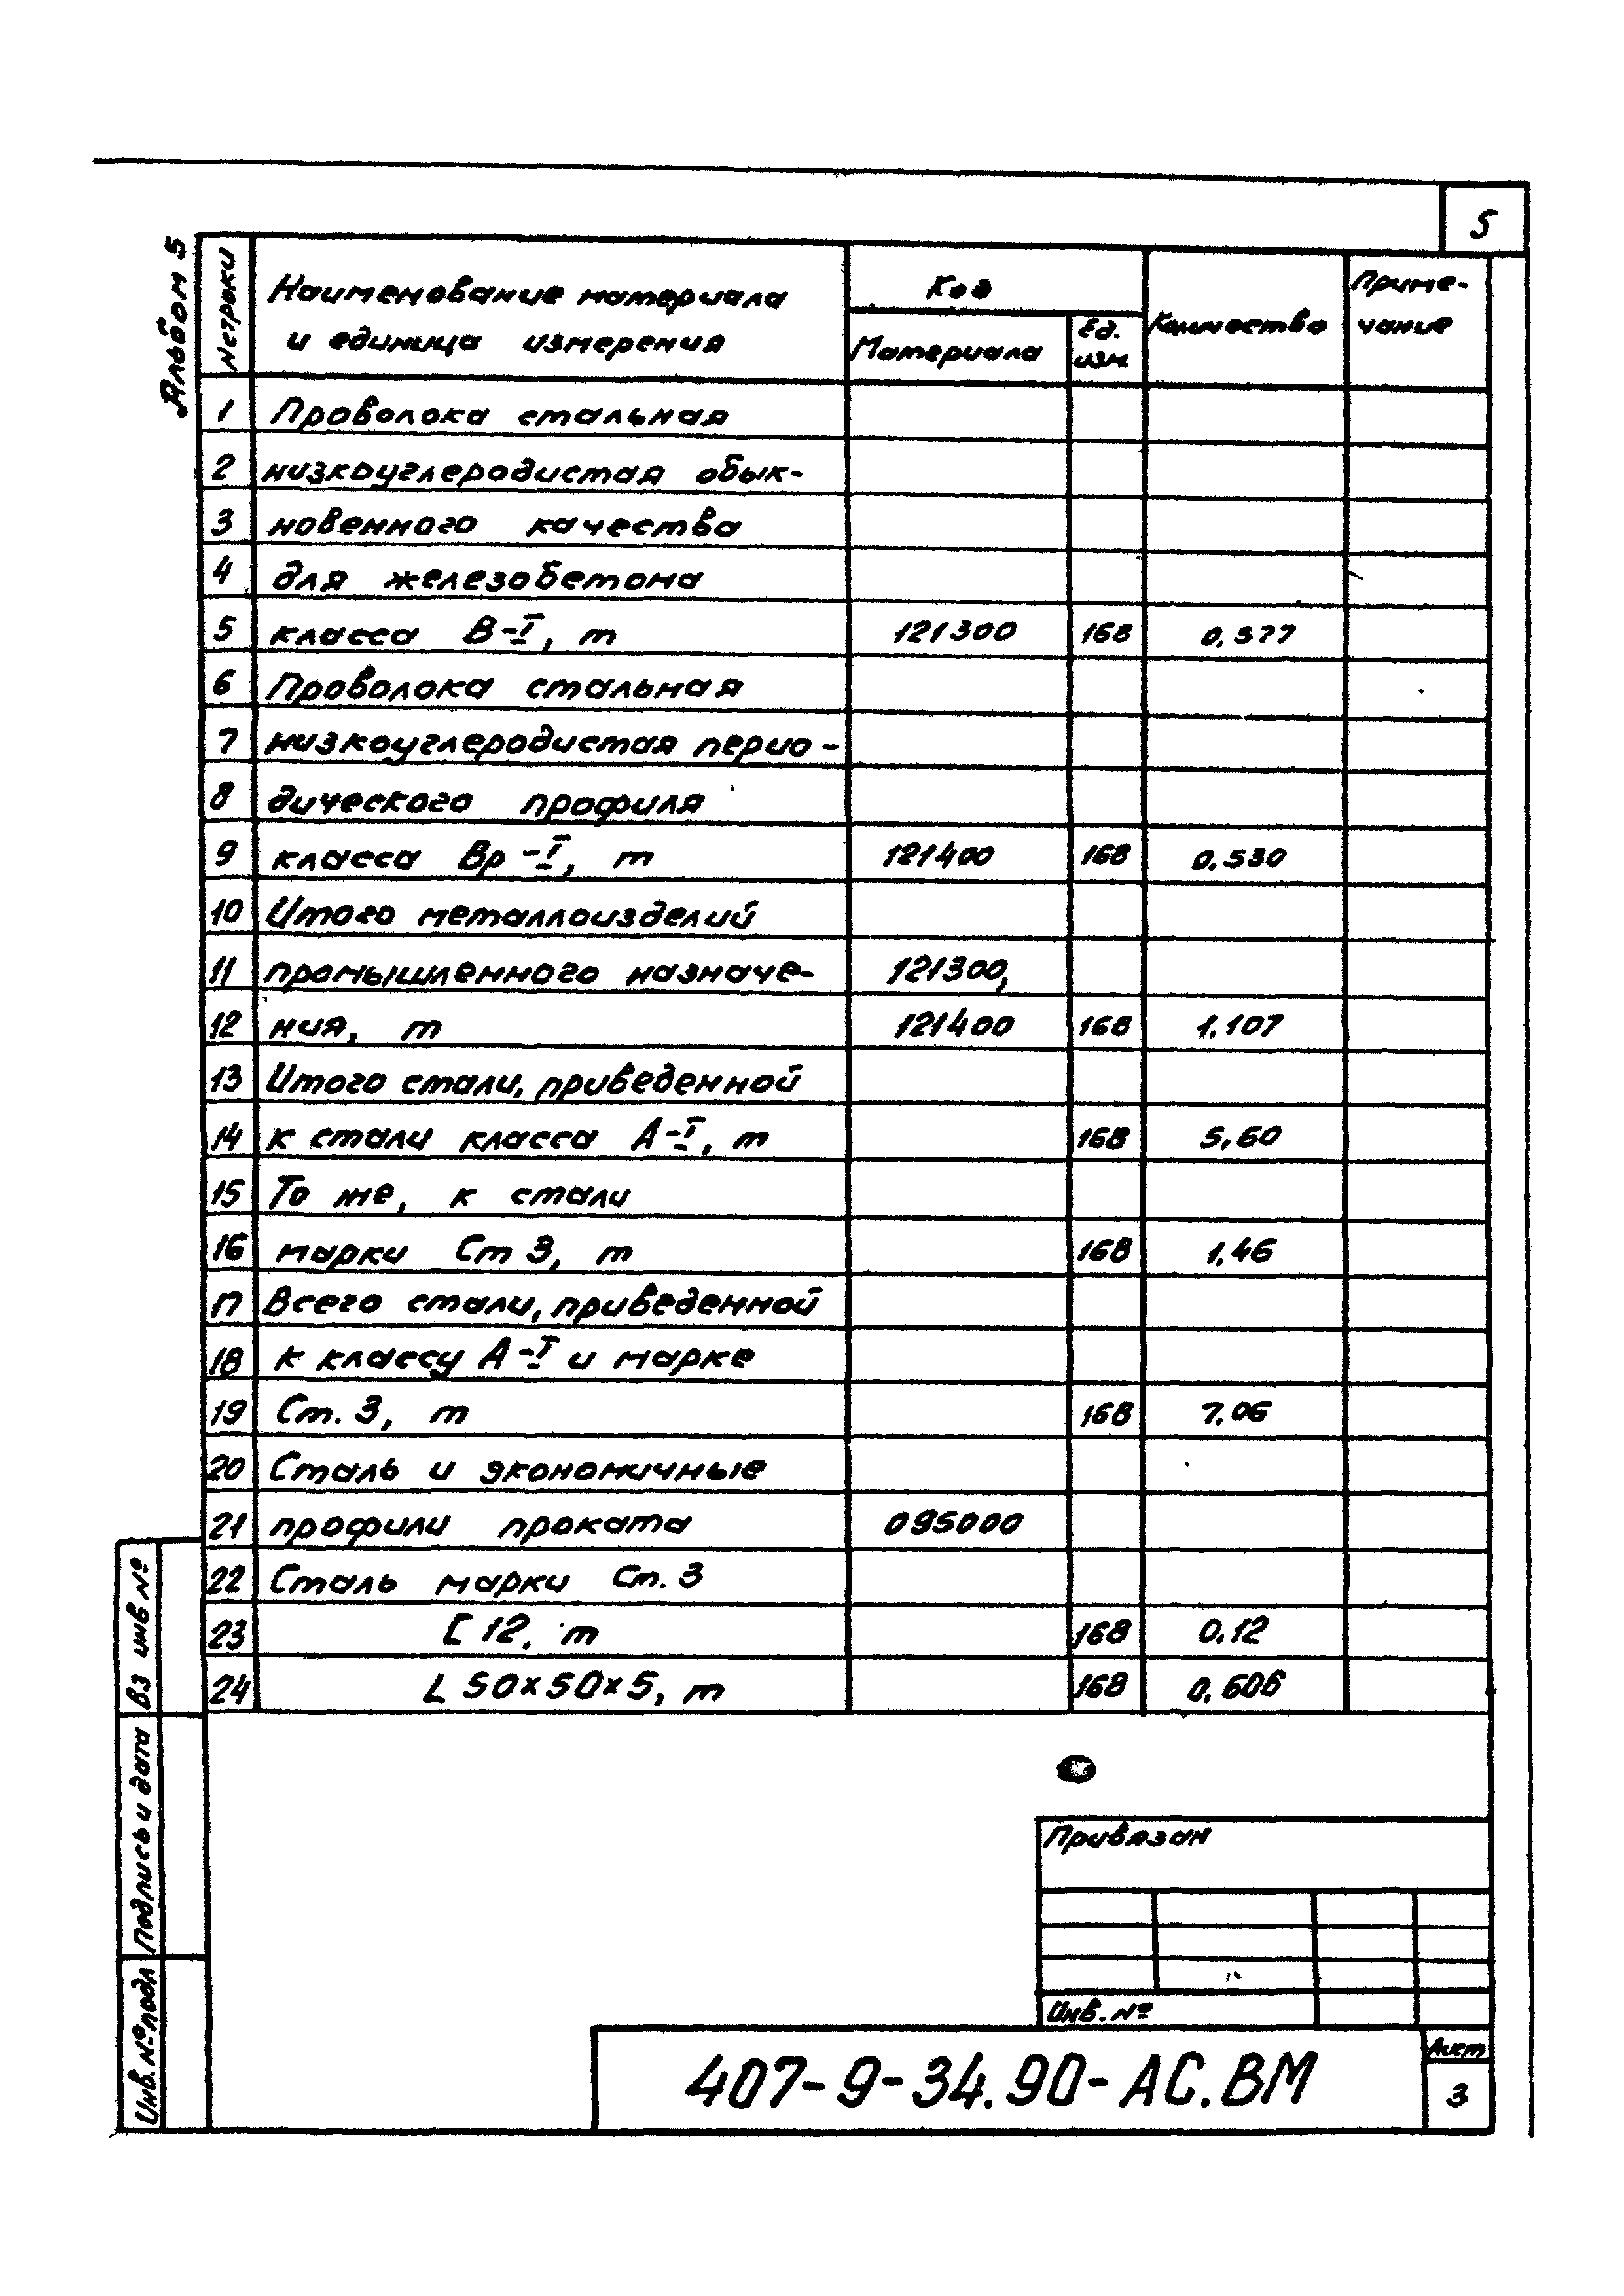 5
Альбом 5
№ строки
Наименование материала
и единица измерения
Код
Материала
Ед.
изм
Количество
Приме-
чание
1 Проволока стальная
2 низкоуглеродистая обык-
3 новенного качества
4 для железобетона
5 класса В-I, т 121300 168 0,577
6 Проволока стальная
7 низкоуглеродистая перио-
8 дического профиля
9 класса Вр-I, т 121400 168 0,530
10 Итого металлоизделий
11 промышленного назначе- 121300,
12 ния, т 121400 168 1,107
13 Итого стали, приведенной
14 к стали класса А-I, т 168 5,60
15 То же, к стали
16 марки Ст 3, т 168 1,46
17 Всего стали, приведенной
18 к классу А-I и марке
19 Ст. 3, т 168 7,06
20 Сталь и экономичные
21 профили проката 095000
22 Сталь марки Ст. 3
23 [ 12, т 168 0,12
24 L 50×50×5, т 168 0,606
Вз инв №
Подпись и дата
Инв. № подл
Привязан
Инв. №
407-9-34.90-АС.ВМ
Лист
3